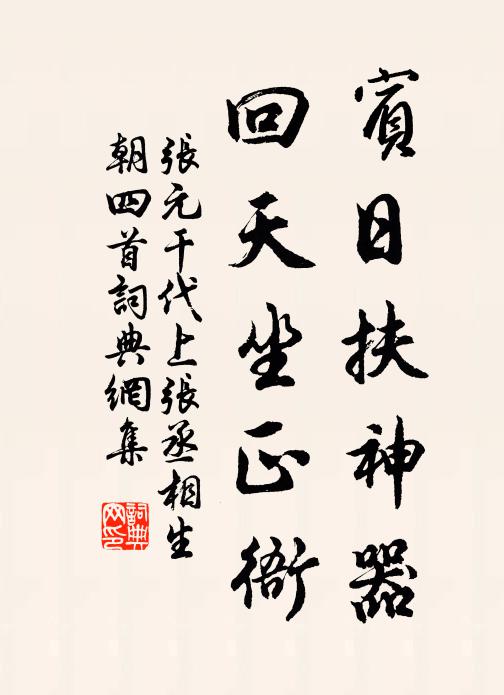 賓日扶神器
回天坐正衙
張元干代上張丞相生
朝四首詞典網集
詞典
网印